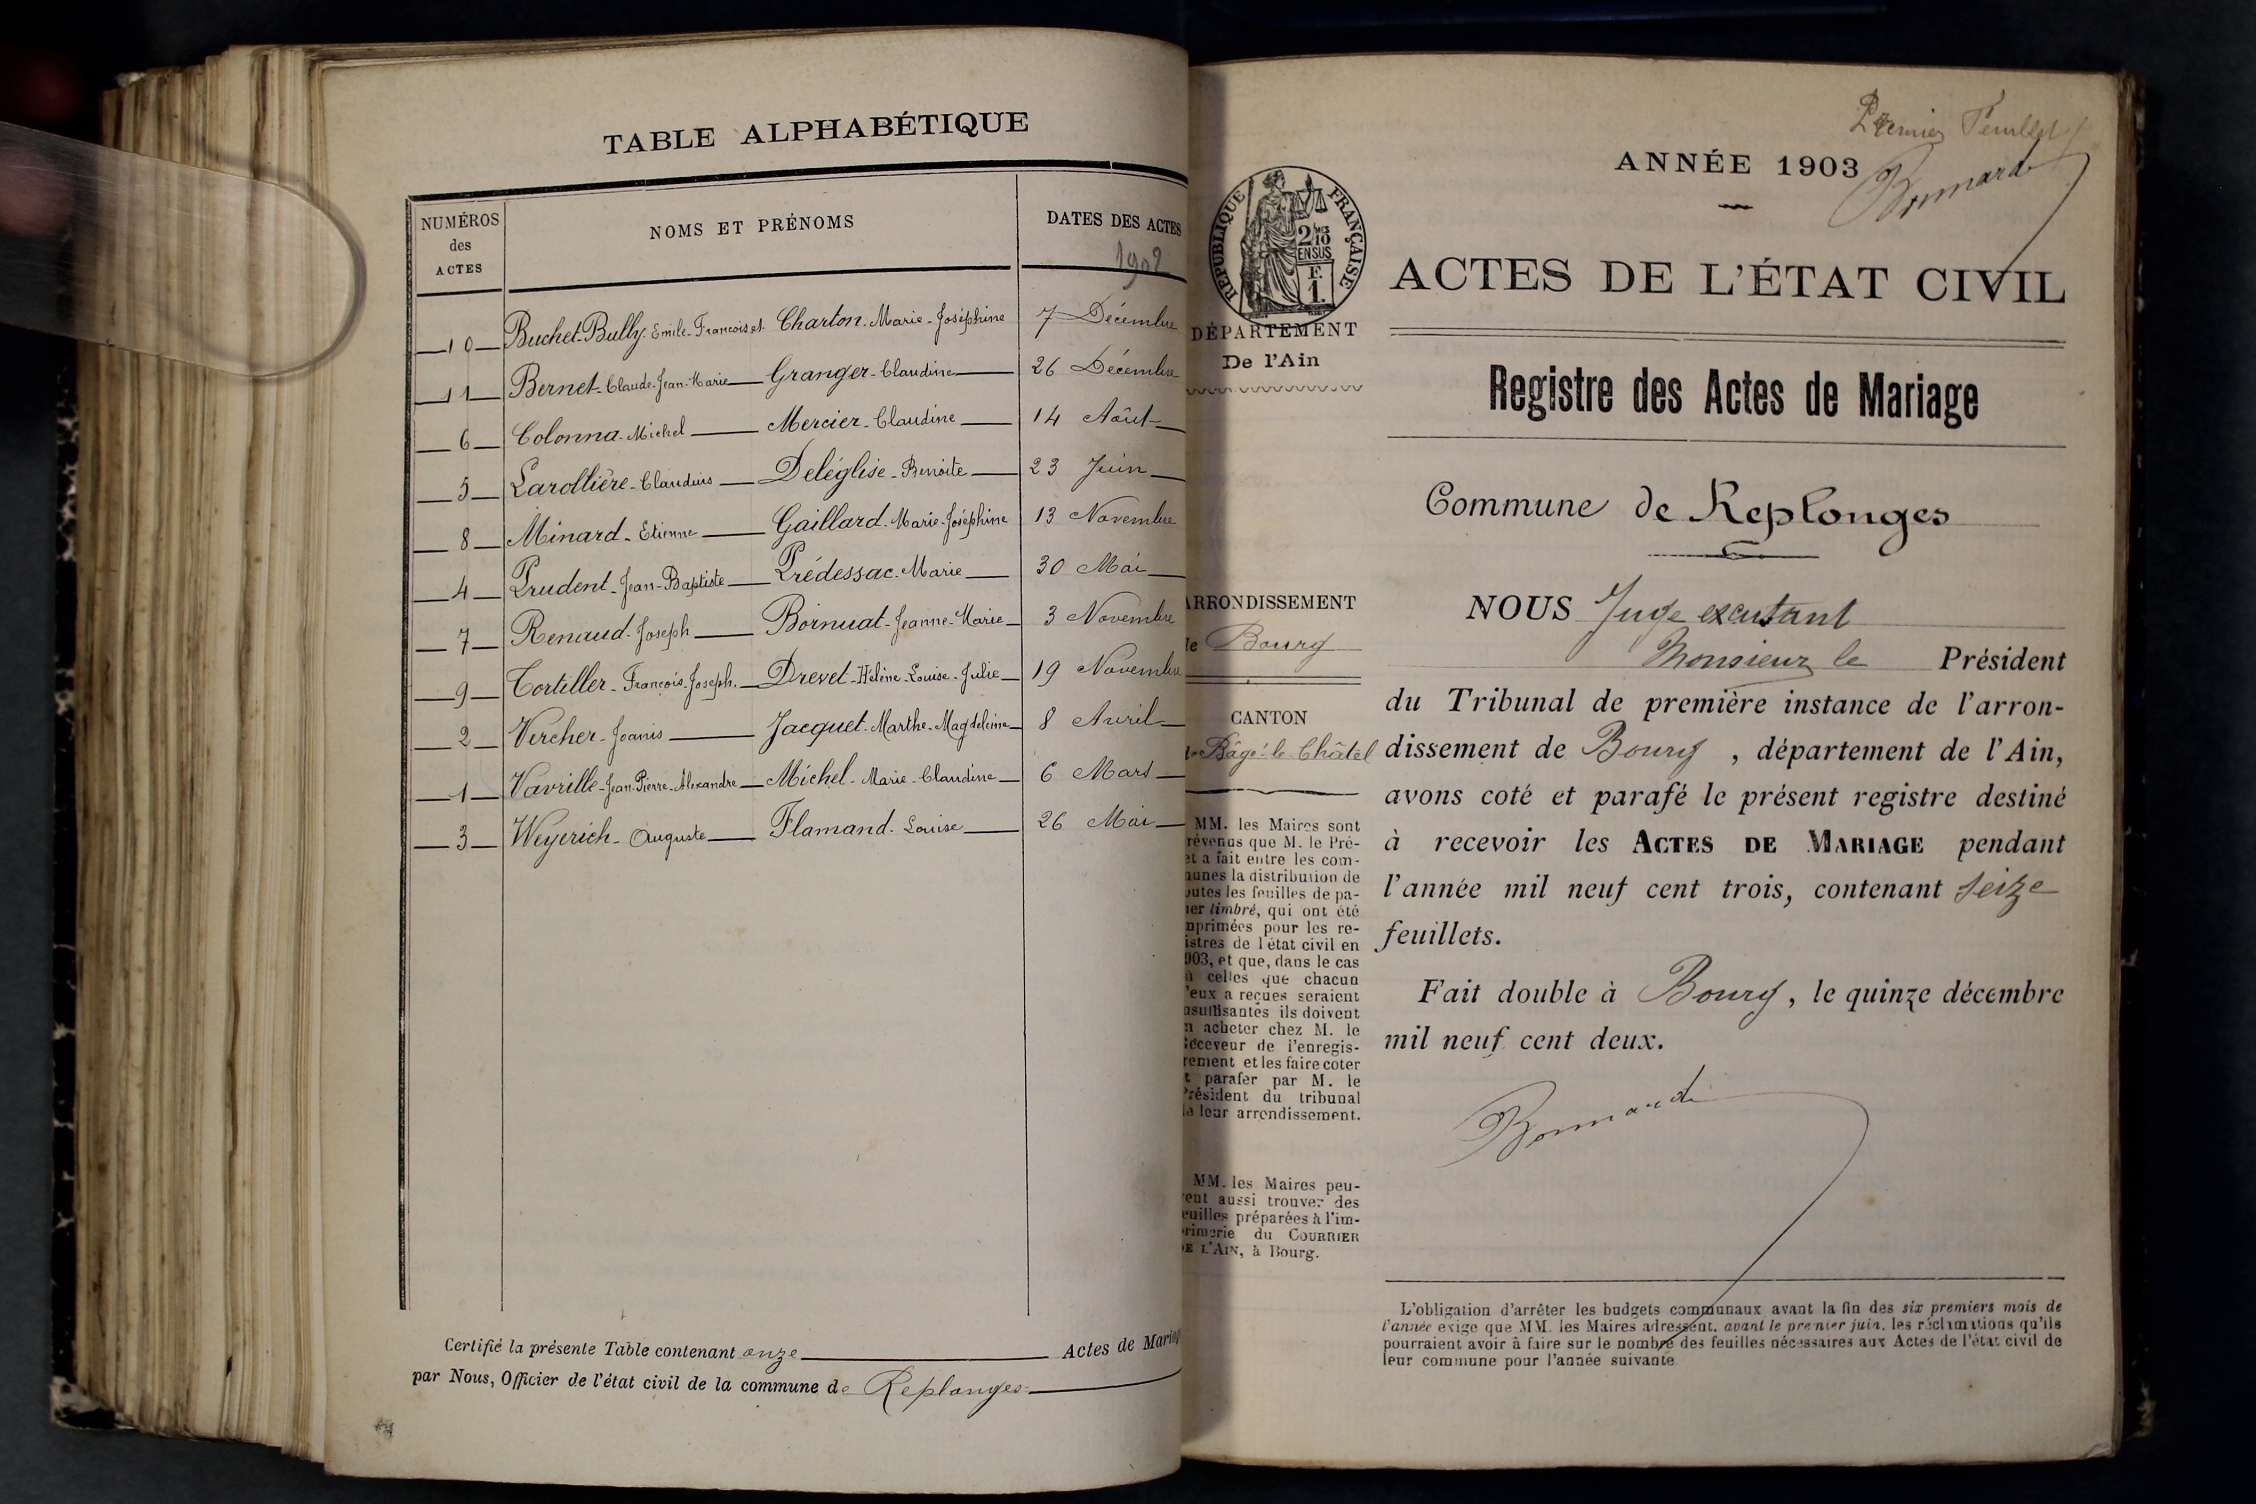 TABLE ALPHABÉTIQUE
NUMÉROS des ACTES
NOMS ET PRÉNOMS
DATES DES ACTES
1902
10 Buchet-Bully-Emile-François et Charton-Marie-Joséphine 7 Décembre
11 Bernet-Claude-Jean-Marie Granger-Claudine 26 Décembre
6 Colonna-Michel Mercier-Claudine 14 Aôut
5 Larollière-Claudius Deléglise-Benoite 23 Juin
8 Minard-Etienne Gaillard-Marie-Joséphine 13 Novembre
4 Prudent-Jean-Baptiste Prédessac-Marie 30 Mai
7 Renaud-Joseph Bornuat-Jeanne-Marie 3 Novembre
9 Tortiller-François-Joseph Drevet-Hélène-Louise-Julie 19 Novembre
2 Vercher-Joanis Jacquet-Marthe-Magdeleine 8 Avril
1 Vavrille-Jean-Pierre-Alexandre Michel-Marie-Claudine 6 Mars
3 Weyerich-Auguste Flamand-Louise 26 Mai
Certifié la présente Table contenant onze Actes de Mariag
par Nous, Officier de l'état civil de la commune de Replonges
Premier Feuillet
Bonnard
ANNÉE 1903
RÉPUBLIQUE FRANÇAISE
2/10 EN SUS
F. 1.
ACTES DE L'ÉTAT CIVIL
DÉPARTEMENT
De l'Ain
Registre des Actes de Mariage
Commune de Replonges
ARRONDISSEMENT
de Bourg
CANTON
de Bâgé-le-Châtel
MM. les Maires sont
révenus que M. le Pré-
et a fait entre les com-
unes la distribution de
outes les feuilles de pa-
ier timbré, qui ont été
mprimées pour les re-
istres de l'état civil en
903, et que, dans le cas
ù celles que chacun
'eux a reçues seraient
nsuffisantes ils doivent
n acheter chez M. le
Receveur de l'enregis-
rement et les faire coter
t parafer par M. le
Président du tribunal
de leur arrondissement.
MM. les Maires peu-
vent aussi trouver des
euilles préparées à l'im-
primerie du COURRIER
DE L'AIN, à Bourg.
NOUS Juge
Monsieur le Président
du Tribunal de première instance de l'arron-
dissement de Bourg, département de l'Ain,
avons coté et parafé le présent registre destiné
à recevoir les ACTES DE MARIAGE pendant
l'année mil neuf cent trois, contenant seize
feuillets.
Fait double à Bourg, le quinze décembre
mil neuf cent deux.
Bonnard
L'obligation d'arrêter les budgets communaux avant la fin des six premiers mois de
l'année exige que MM. les Maires adressent, avant le premier juin, les réclamations qu'ils
pourraient avoir à faire sur le nombre des feuilles nécessaires aux Actes de l'état civil de
leur commune pour l'année suivante.